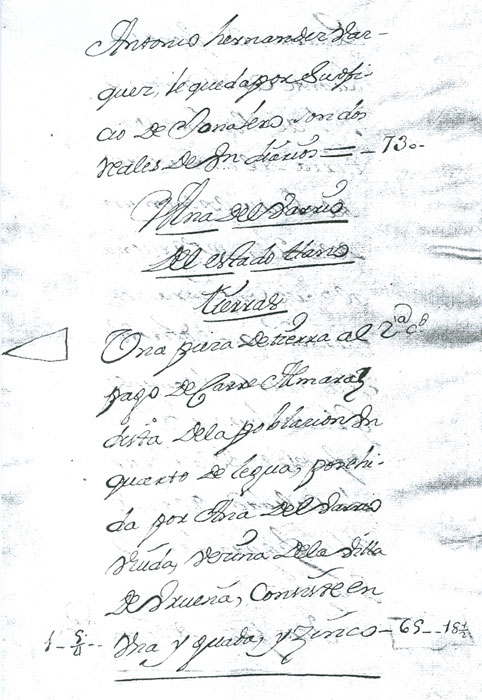 Antonio hernandez Vaz-
quez, le queda por su ofi-
cio de Jornalero, son dos
reales de Vn diarios = - 730-
Ana del Varrio
del estado llano
tierras
Una pieza de tierra al 2ª cª
pago de Carre Almaraz
dista de la poblacion Un
quarto de legua, posehi-
da por Ana del Varrio
Viuda, Vezina de la Villa
de, Conviste en
1 - 5/8 -- Vna y quada, y Zinco - 65 -- 18 1/2